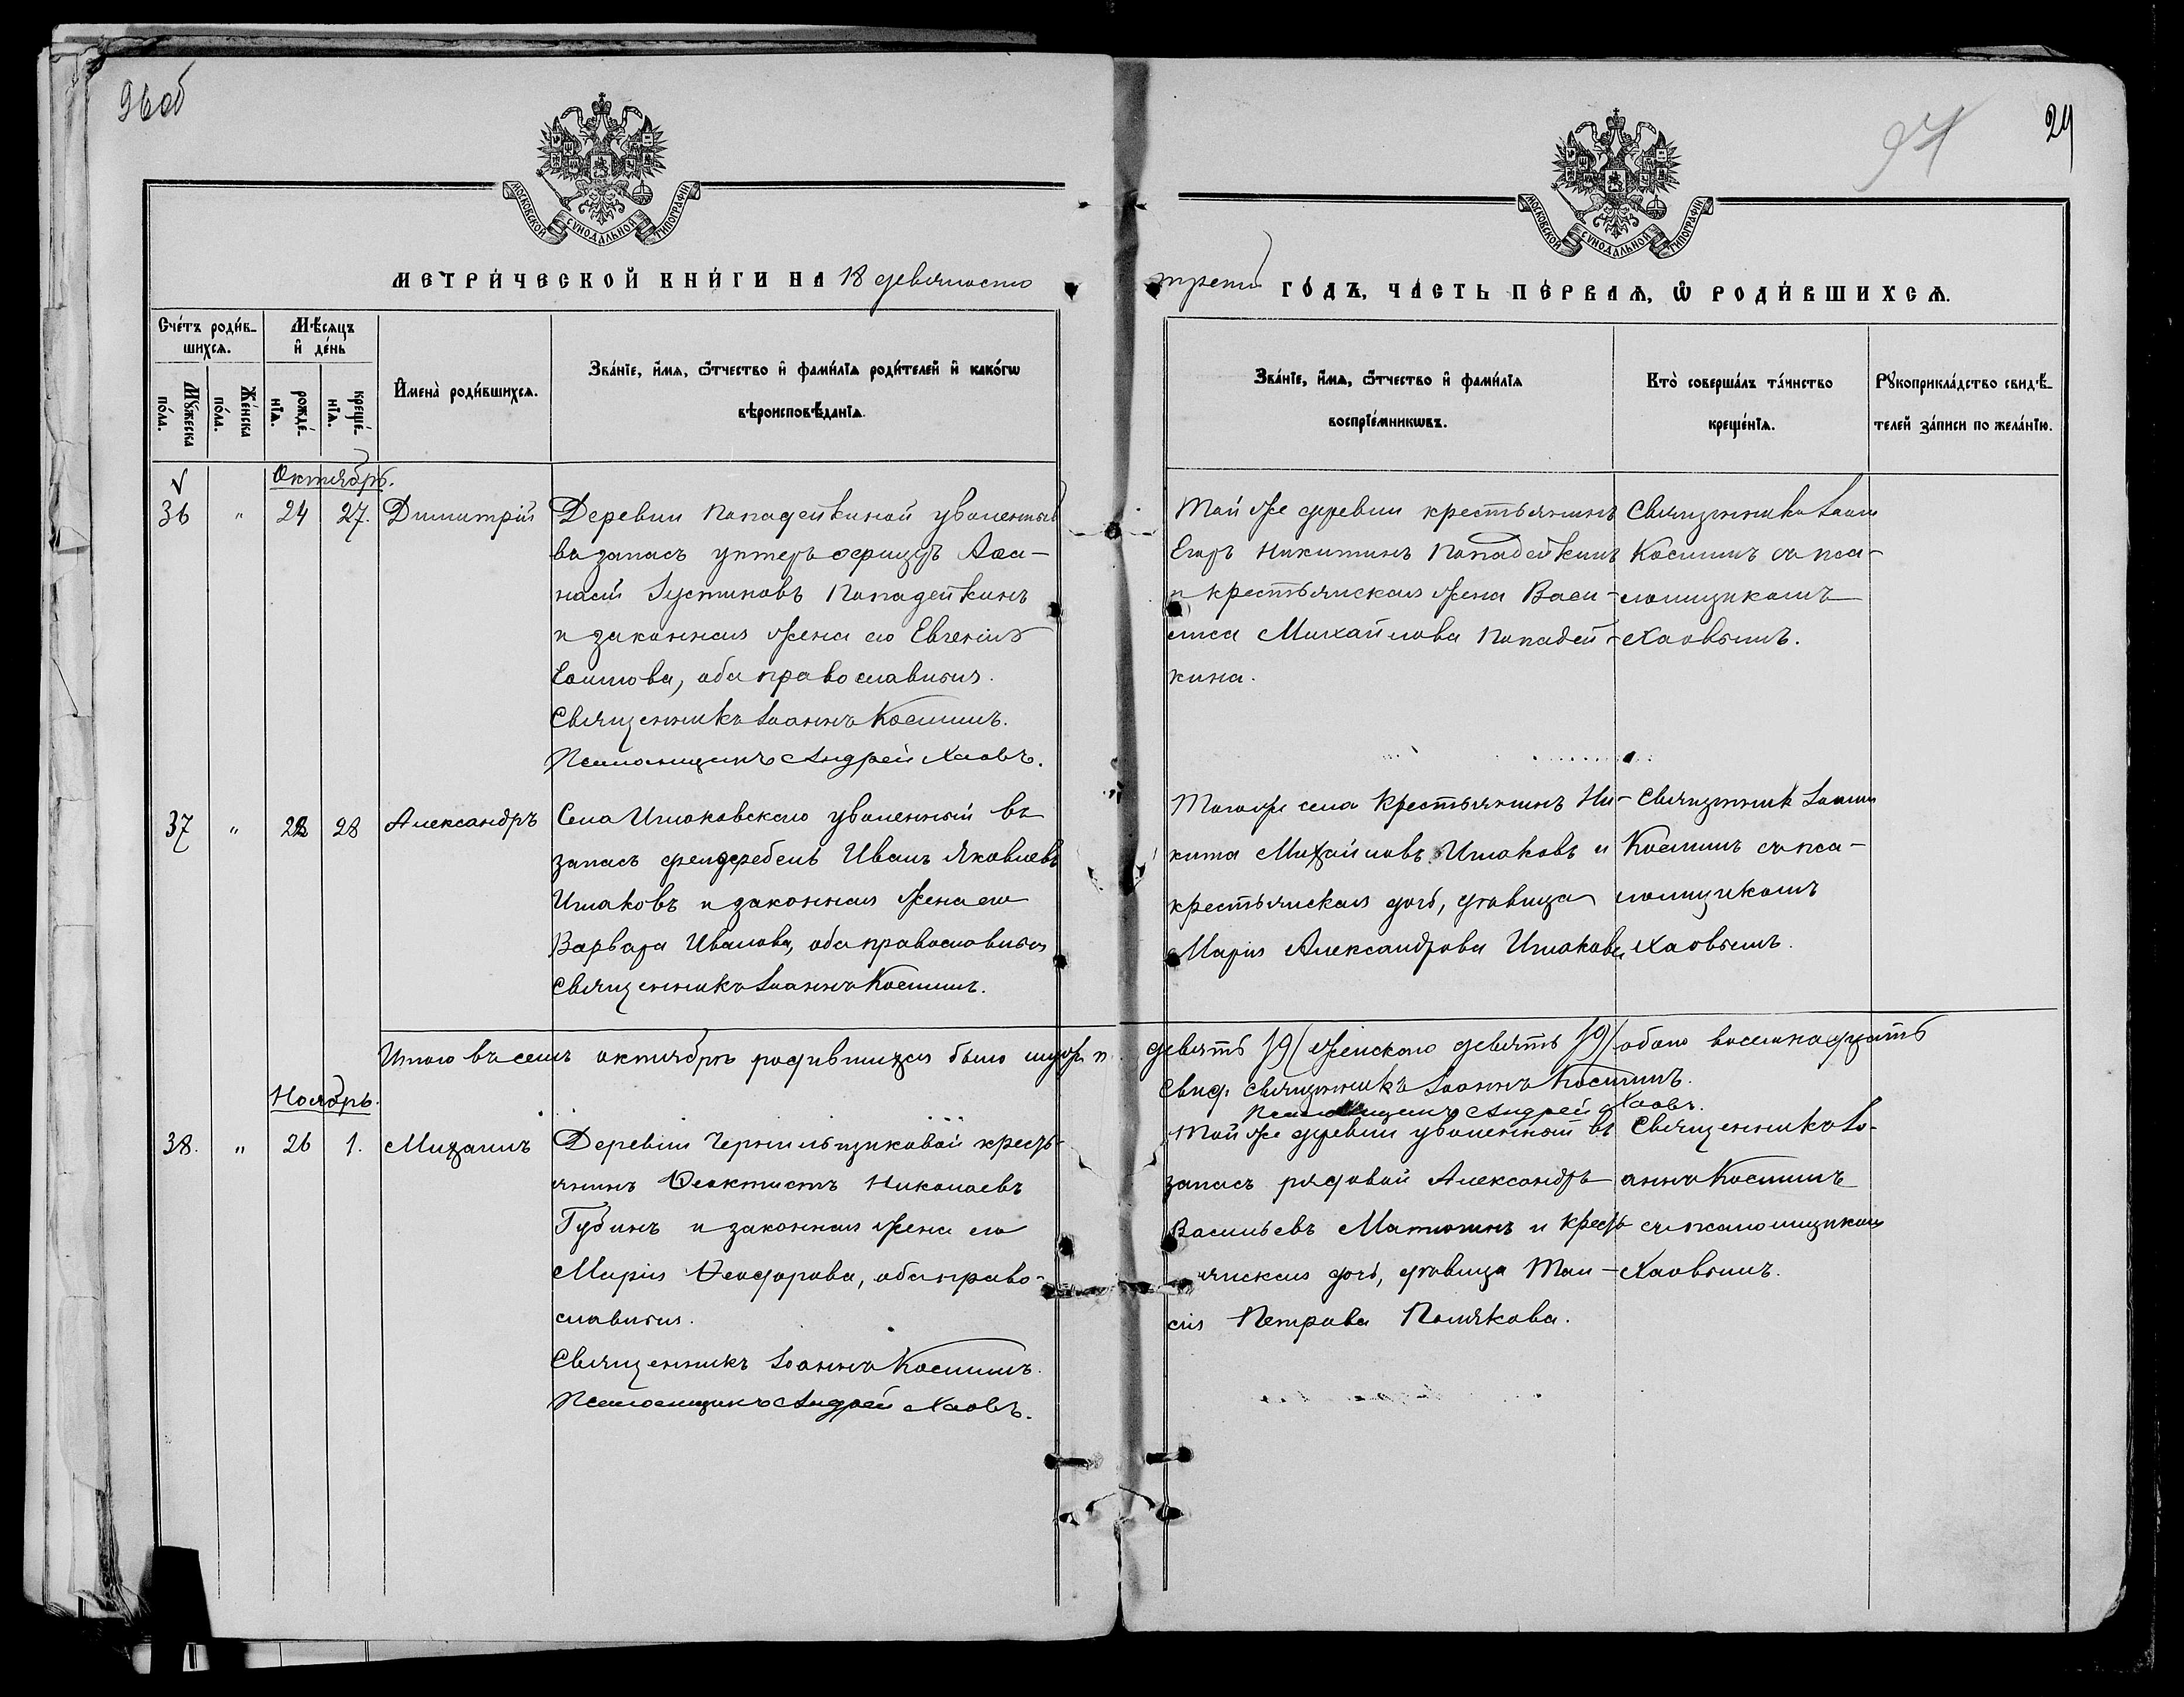 96об
94
29
МОСКОВСКОЙ СѴНОДАЛЬНОЙ ТИПОГРАФІИ
МОСКОВСКОЙ СѴНОДАЛЬНОЙ ТИПОГРАФІИ
МЕТРИ́ЧЕСКОЙ КНИ́ГИ НА 18 девяносто
третій ГО́ДЪ, ЧА́СТЬ ПЕ́РВАѦ, Ѽ РОДИ́ВШИХСѦ.
Сче́тъ роди́в-
шихсѧ.
Мѣ́сѧцъ
и҆ де́нь
Мꙋ́жеска
по́ла.
Же́нска
по́ла.
рожде́-
нїѧ.
креще́-
нїѧ.
И҆мена̀ роди́вшихсѧ.
Зва́нїе, и҆́мѧ, ѻ҆́тчество и҆ фами́лїѧ роди́телей и҆ како́гѡ
вѣроисповѣ́данїѧ.
Зва́нїе, и҆́мѧ, ѻ҆́тчество и҆ фами́лїѧ
воспрїе́мникѡвъ.
Кто̀ соверша́лъ та́инство
креще́нїѧ.
Рꙋкоприкла́дство свидѣ́-
телей за́писи по жела́нїю.
Октябрь.
36 " 24 27. Димитрій
Деревни Пападейкиной уволенный
въ запасъ унтеръ офицеръ Аѳа-
насій Іустиновъ Пападейкинъ
и законная жена его Евгенія
Емимова, оба православныя.
Священникъ Іоаннъ Косминъ.
Псаломщикъ Андрей Хаовъ.
Той же деревни крестьянинъ
Егоръ Никитинъ Пападейкинъ
и крестьянская жена Васи-
лиса Михайлова Пападей-
кина.
Священникъ Іоаннъ
Косминъ съ пса-
ломщикомъ
Хаовымъ.
37 " 22 28 Александръ
Села Ишаковского уволенный въ
запасъ фельдфебель Иванъ Яковлевъ
Ишаковъ и законная жена его
Варвара Иванова, оба православныя
Священникъ Іоаннъ Косминъ.
Тогоже села крестьянинъ Ни-
кита Михайловъ Ишаковъ и
крестьянская дочь, девица
Марія Александрова Ишакова
Священникъ Іоаннъ
Косминъ съ пса-
ломщикомъ
Хаовымъ.
Итого въ семъ октябрѣ родившихся было муж. п. девять /9/ женского девять /9/ обоего восемнадцать
Свид. Священникъ Іоаннъ Косминъ.
Псаломщикъ Андрей Хаовъ.
Ноябрь.
38. " 26 1. Михаилъ
Деревни Чернильщиковой кресть-
янинъ Ѳеоктистъ Николаевъ
Губинъ и законная жена его
Марія Ѳеодорова, оба право-
славныя.
Священникъ Іоаннъ Косминъ.
Псаломщикъ Андрей Хаовъ.
Той же деревни уволенный въ
запасъ рядовой Александръ
Васильевъ Матюшинъ и кресть-
янская дочь, девица Таи-
сія Петрова Полякова.
Священникъ Іо-
аннъ Косминъ
съ псаломщикомъ
Хаовымъ.